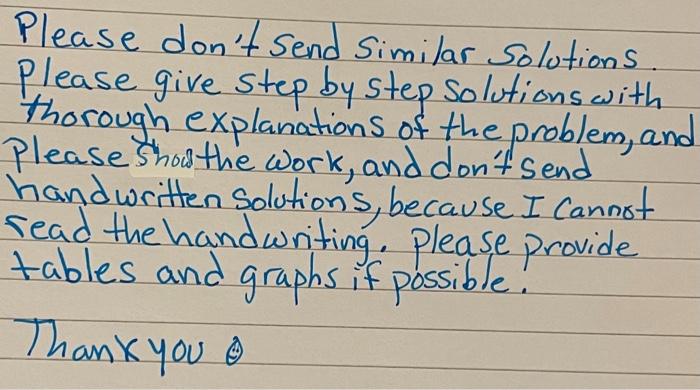 Please don't send similar solutions.
Please give step by step solutions with
thorough explanations of the problem, and
Please show the work, and don't send
handwritten solutions, because I cannot
read the handwriting. Please provide
tables and graphs if possible.
Thank you ☺